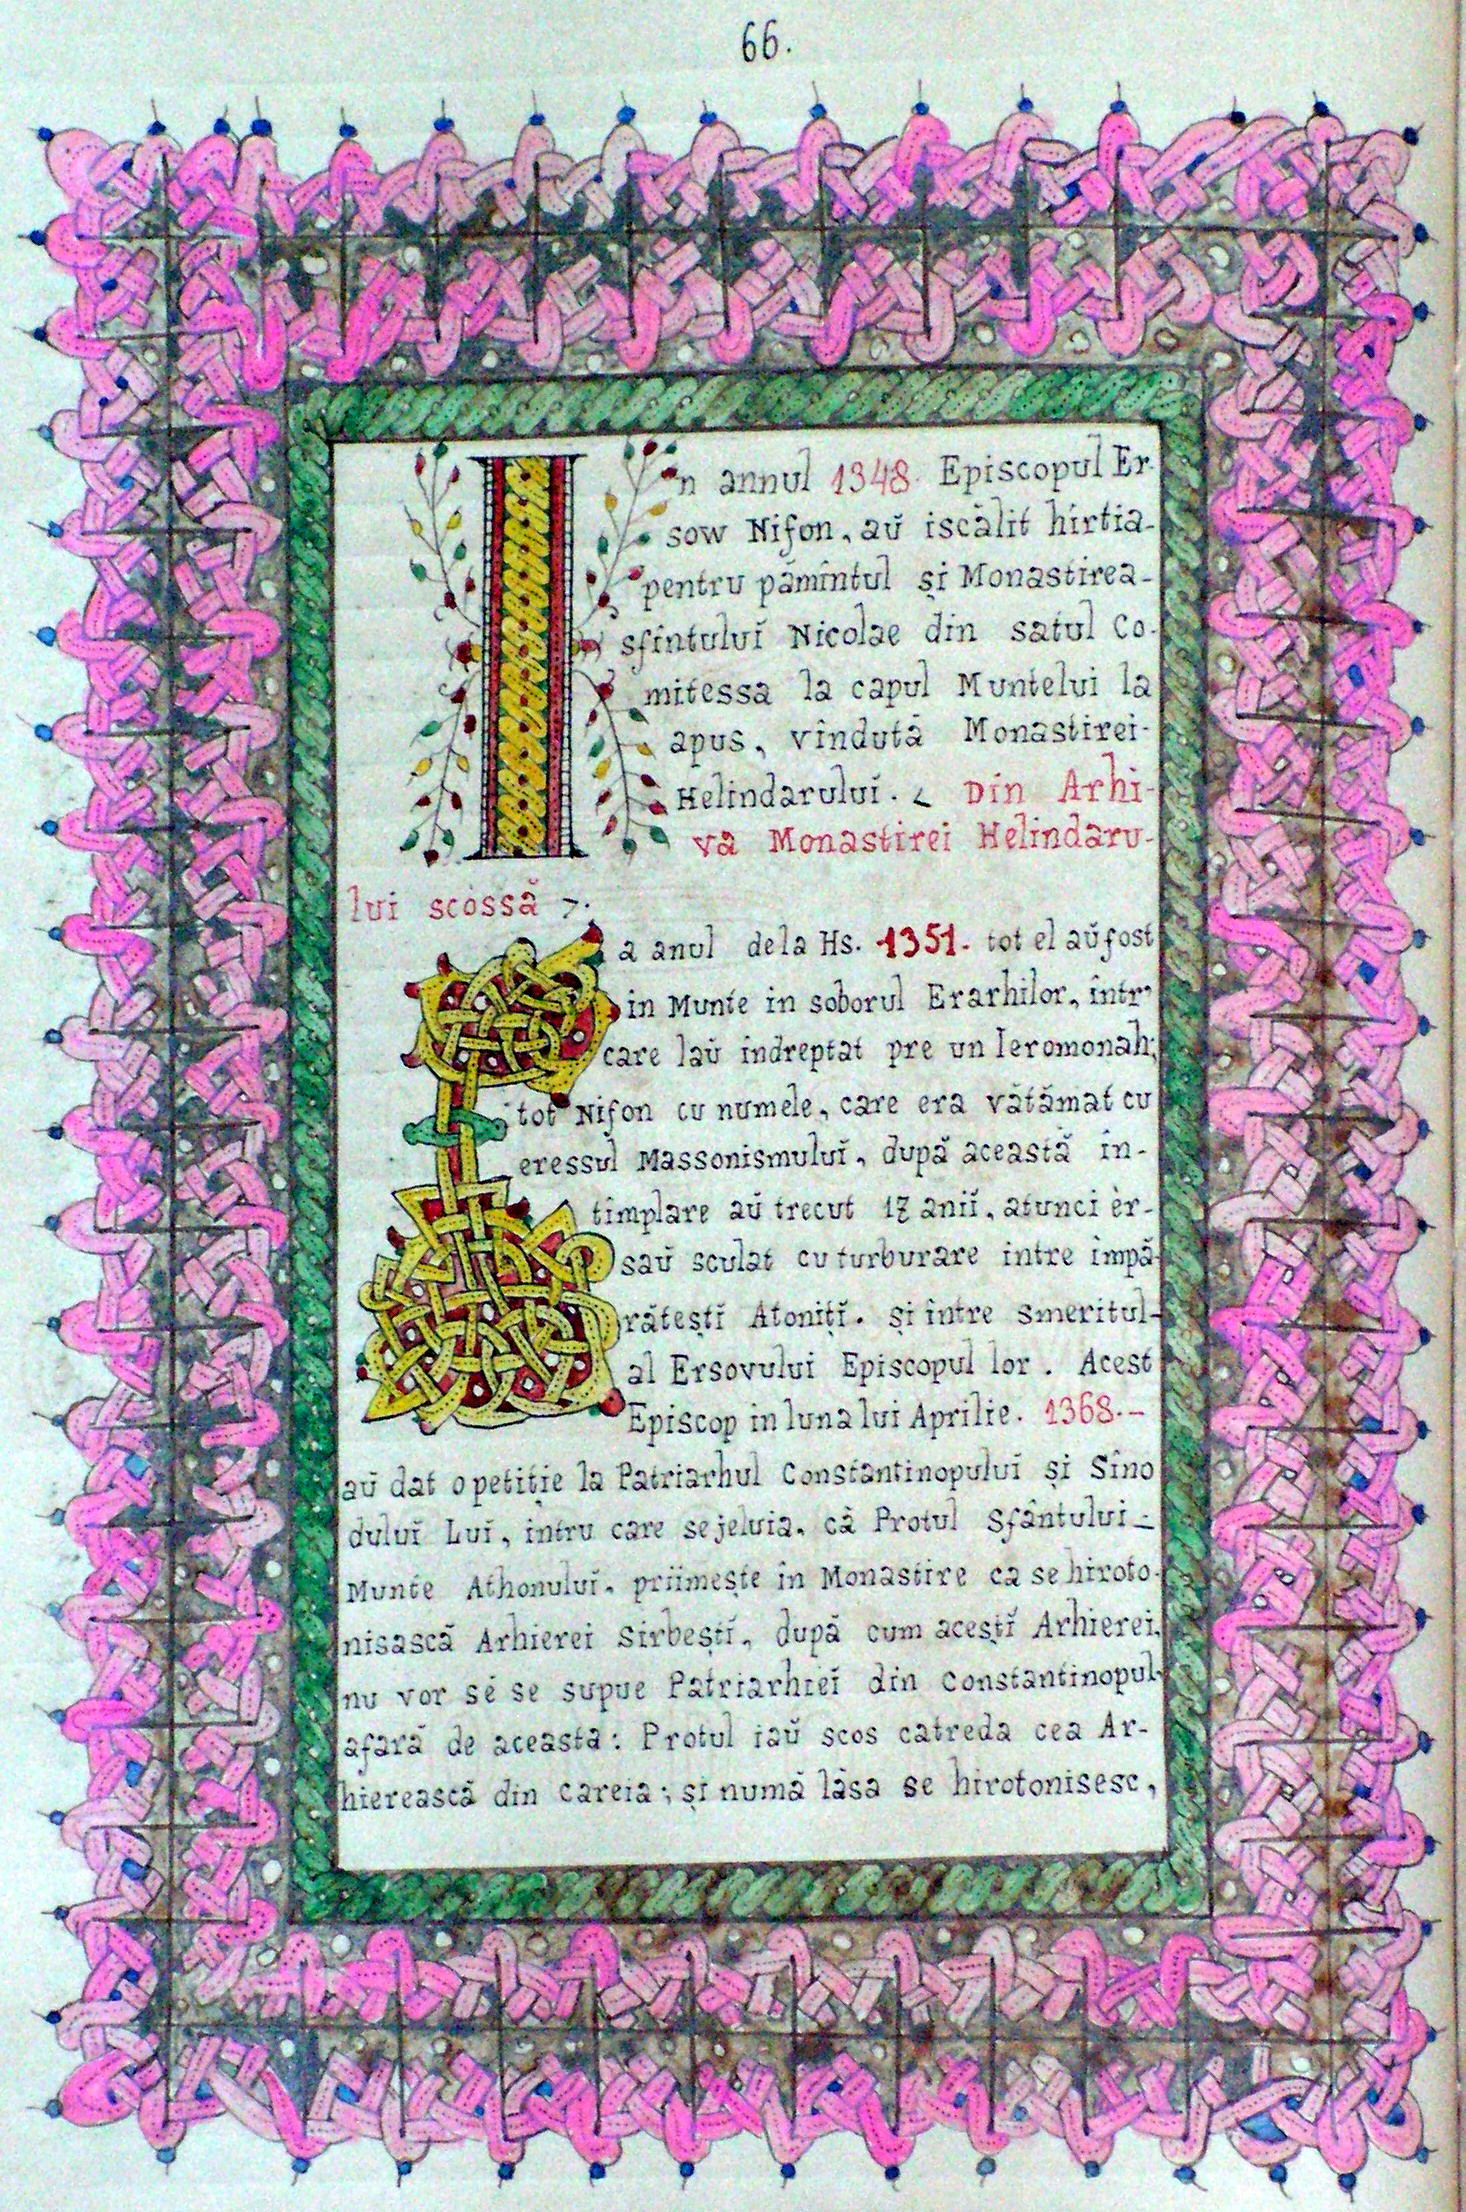 66.
In annul 1348. Episcopul Er-
sow Nifon, aŭ iscălit hîrtia-
pentru pămîntul și Monastirea-
sfîntuluĭ Nicolae din satul Co-
mitessa la capul Muntelui la
apus, vîndută Monastirei-
Helindaruluĭ. < Din Arhi-
va Monastirei Helindaru-
lui scossă >.
La anul dela Hs. 1351. tot el aŭ fost
in Munte in soborul Erarhilor, într'
care laŭ indreptat pre un Ieromonah;
tot Nifon cu numele, care era vătămat cu
eressul Massonismuluĭ, după această în-
timplare aŭ trecut 17 aniĭ, atunci èr-
saŭ sculat cu turburare intre împă-
răteștĭ Atonițĭ. și între smeritul-
al Ersovuluĭ Episcopul lor. Acest
Episcop in luna lui Aprilie. 1368.-
aŭ dat o petiție la Patriarhul Constantinopuluĭ și Sino
duluĭ Luĭ, intru care se jeluia, că Protul Sfântului-
Munte Athonuluĭ, priimește în Monastire ca se hiroto-
nisască Arhierei Sirbeștĭ, după cum aceștĭ Arhierei,
nu vor sé se supue Patriarhieĭ din Constantinopul,
afară de aceasta: Protul iaŭ scos catreda cea Ar-
hierească din Careia; și numă lăsa se hirotonisesc,